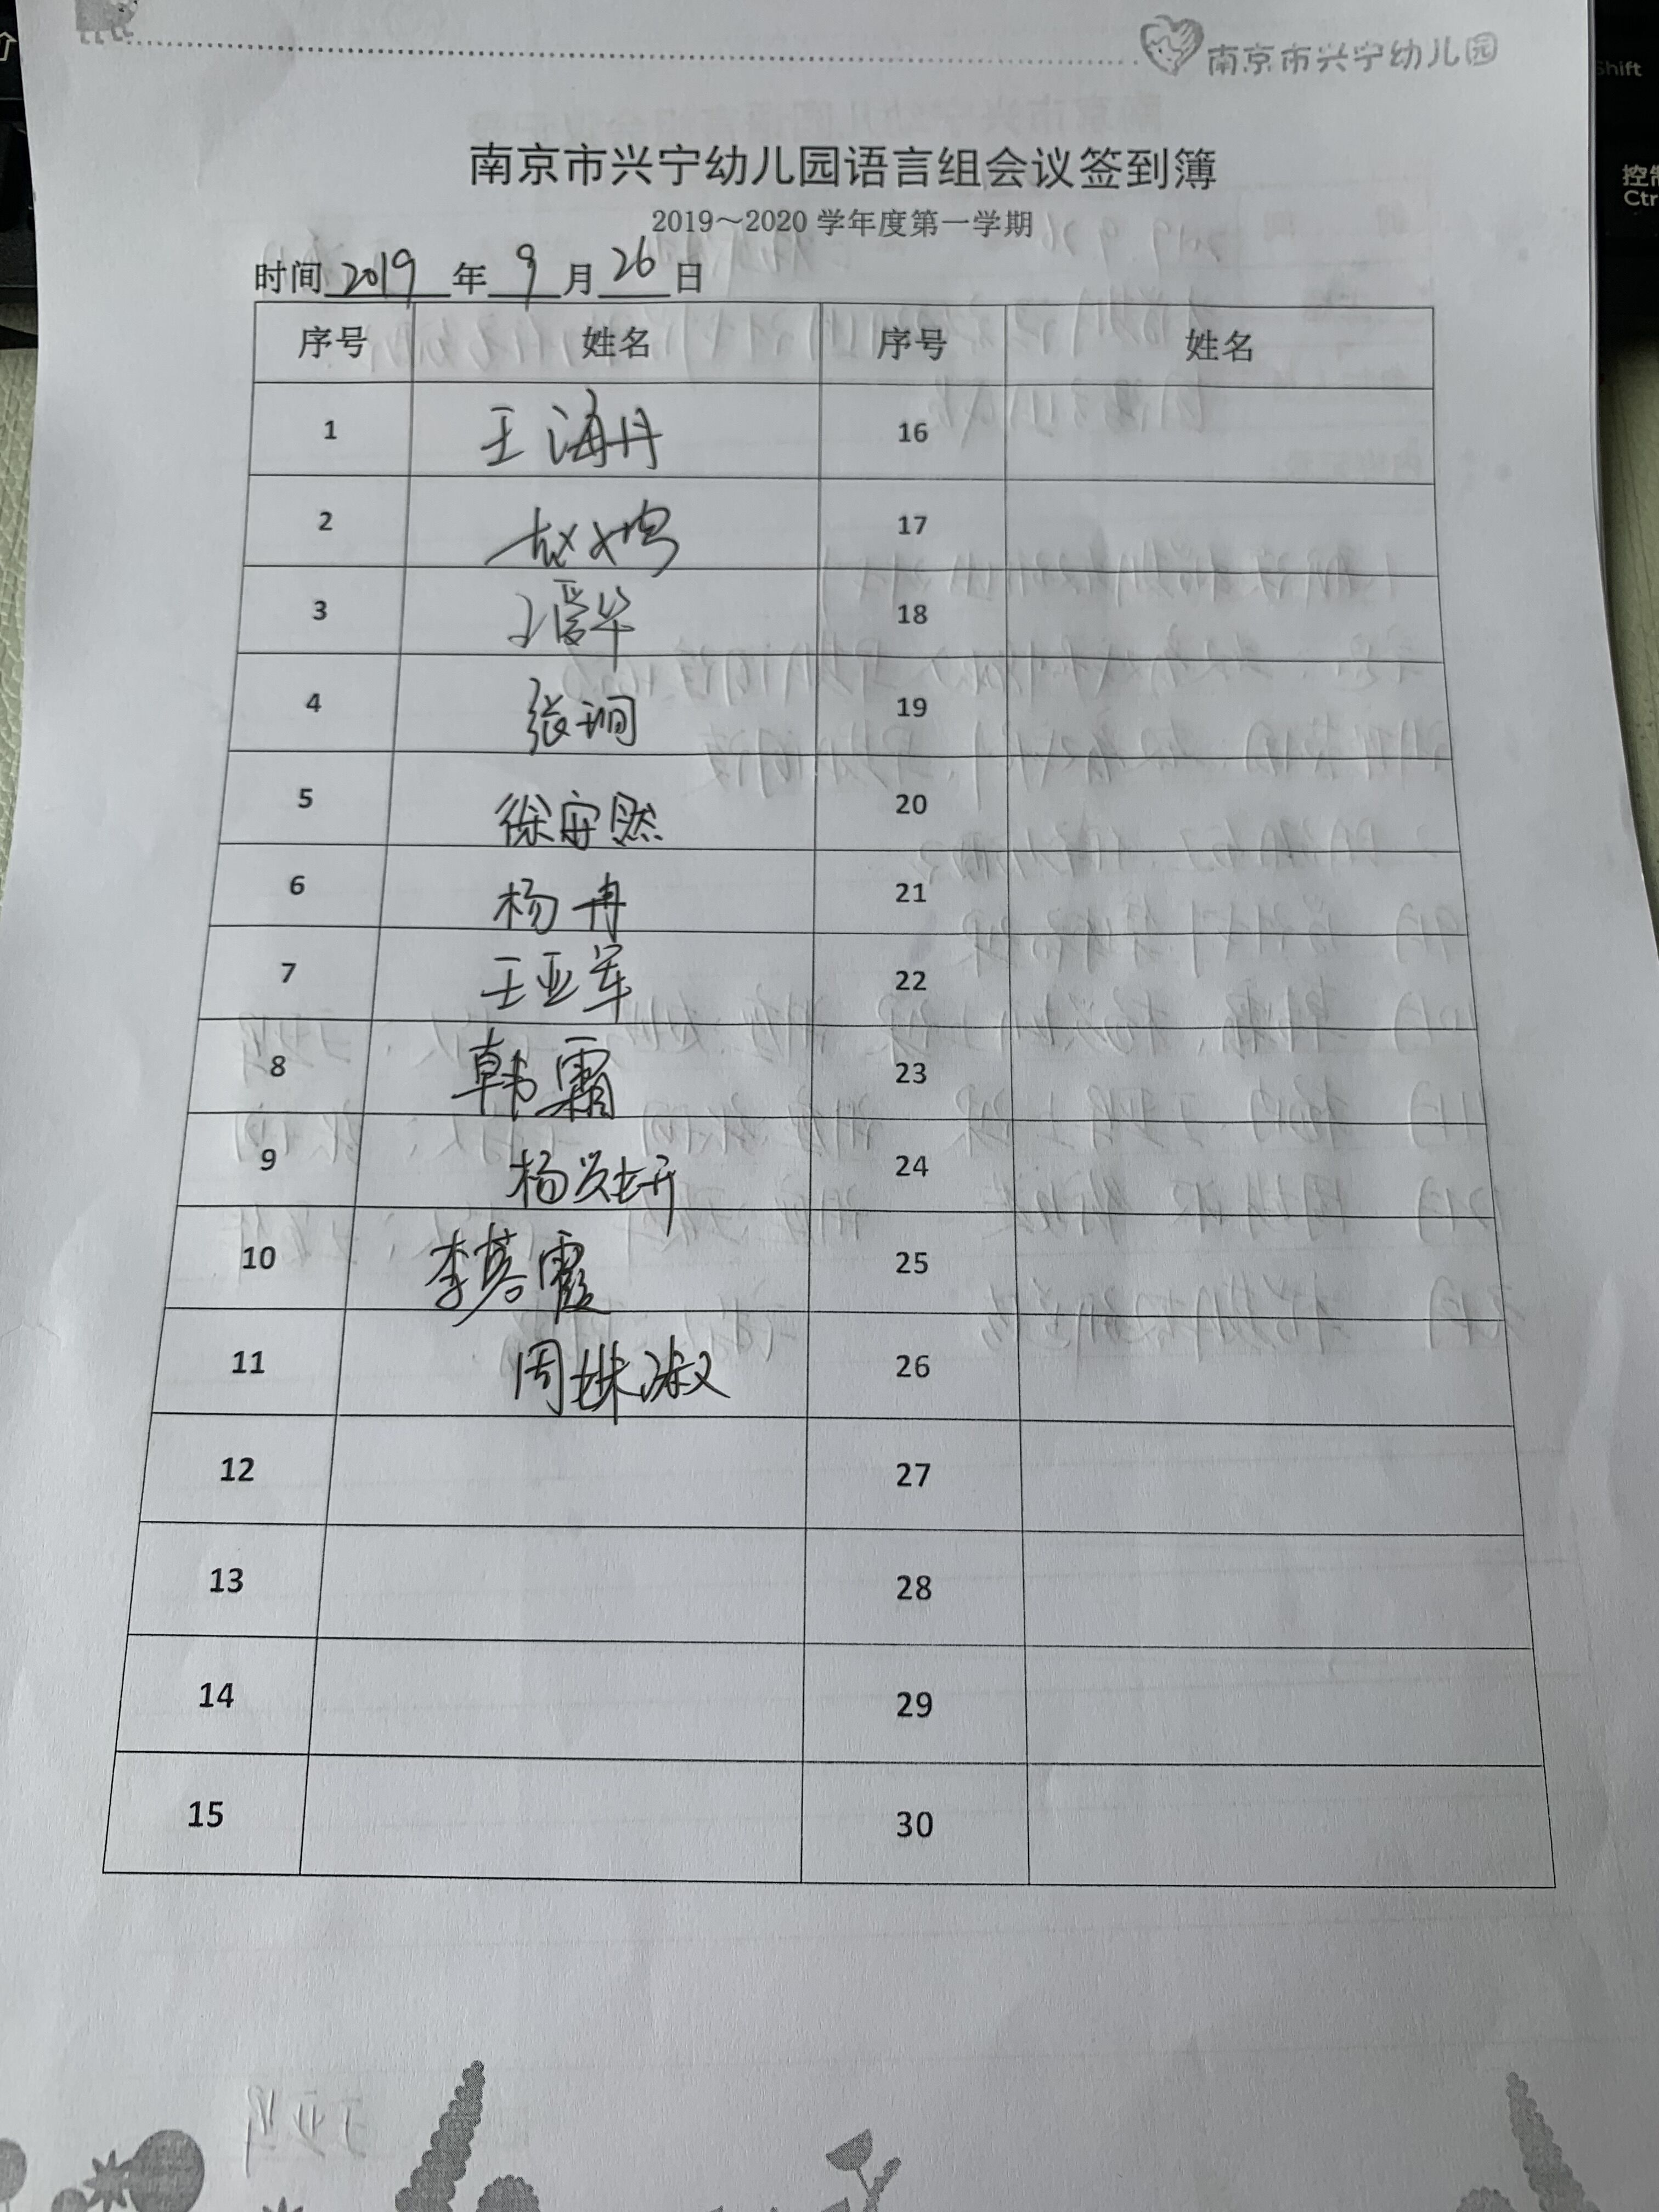 南京市兴宁幼儿园
南京市兴宁幼儿园语言组会议签到簿
2019～2020 学年度第一学期
时间 2019 年 9 月 26 日
序号 姓名 序号 姓名
1 王海丹 16
2 赵 17
3 王爱华 18
4 张珣 19
5 徐安然 20
6 杨冉 21
7 王亚军 22
8 韩霜 23
9 杨妍 24
10 李蓉霞 25
11 周姝淑 26
12 27
13 28
14 29
15 30
Shift
控制
Ctr